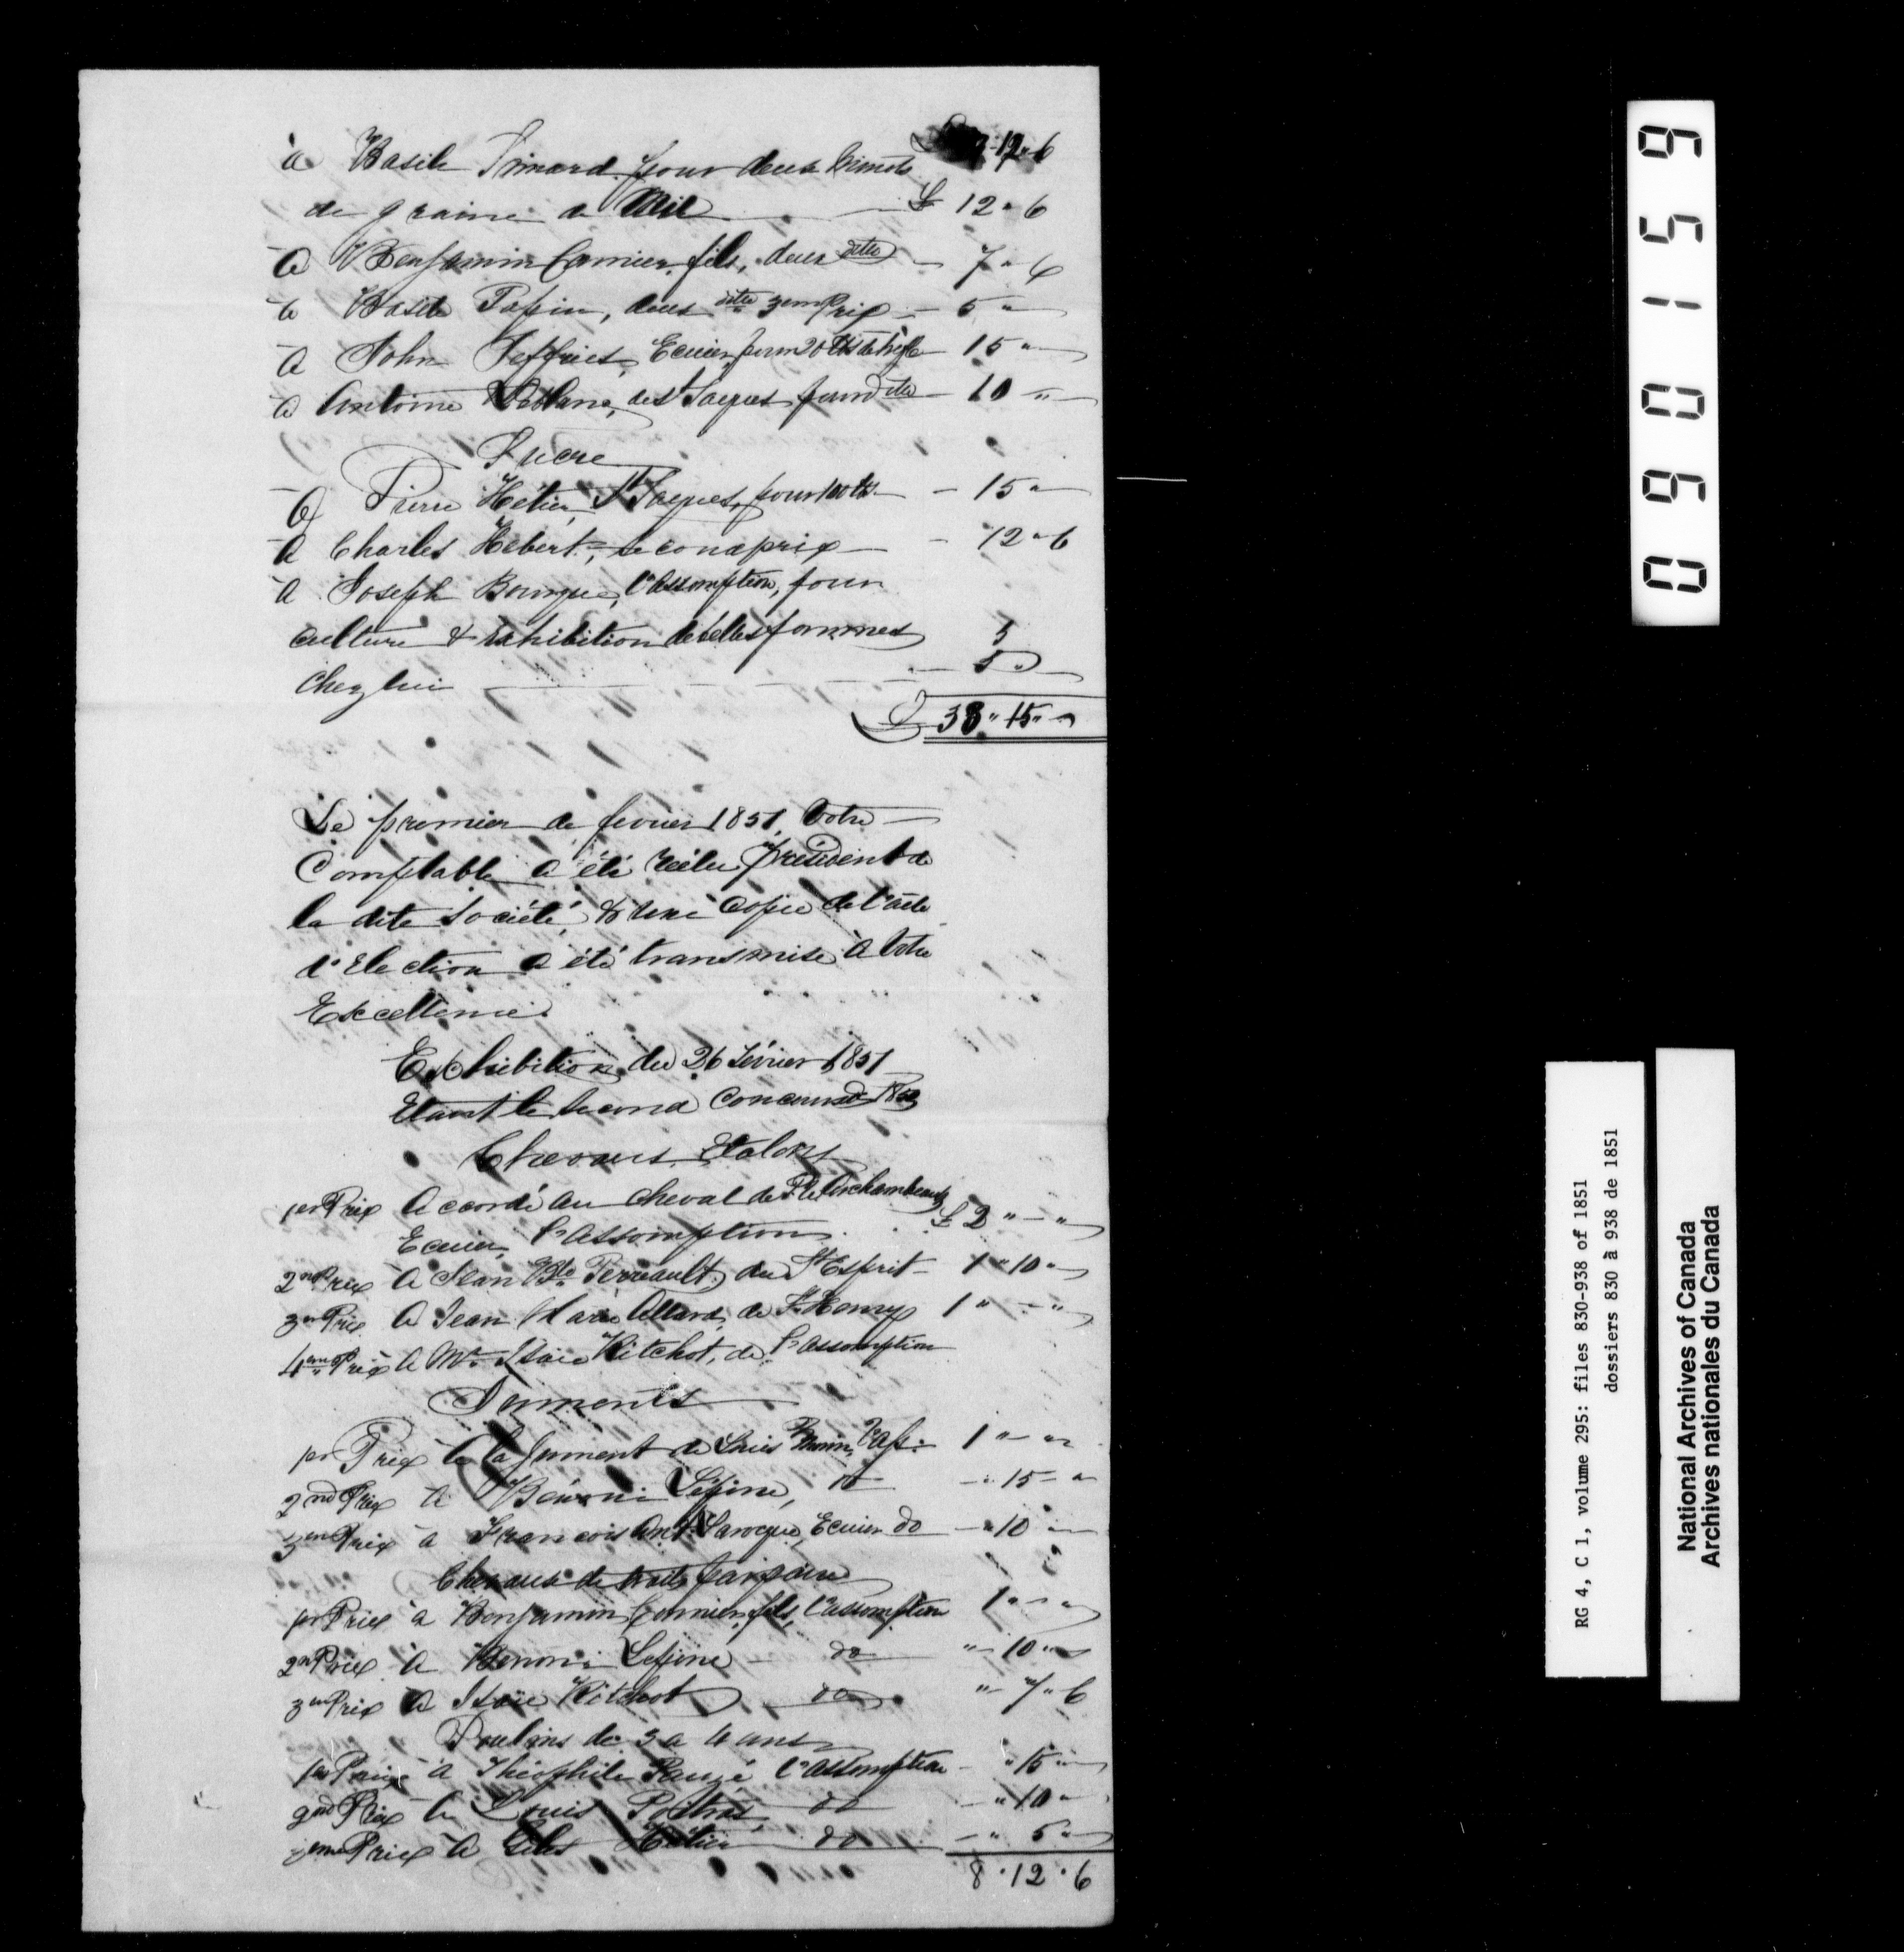 12 " 6
à Basile Simard pour deux minots
de graine de Mil £ 12 " 6
à Benjamin Cormier, fils, deux ditto 7 " 6
à Basile Papin, deux ditto 3em Prix 5 "
à John Jeffries, Ecuier, pour 20 lbs de trefle 15 "
à Antoine Leblanc, de St Jacques pour ditto 10 "
Sucre
à Pierre Hétier, St Jacques, pour 100 lbs 15 "
à Charles Hebert, second prix 12 " 6
à Joseph Bourque, l'Assomption, pour
culture & exhibition de belles pommes 5
chez lui 5 "
£ 38 " 15 "
Le premier de fevrier 1851, Votre
Comptable a été réélu président de
la dite Société, & une Copie de l'acte
d'Election a été transmise à Votre
Excellence.
Exhibition du 26 Février 1851
Etant le second Concours de 1850
Chevaux Etalons
1er Prix Accordé au cheval de P. U. Archambault
Ecuier, L'Assomption £ 2 " - "
2nd Prix à Jean Bte Perreault, du St Esprit 1 " 10 "
3em Prix à Jean Marie Allard, de St Henry 1 " - "
4em Prix à Mr Isaïe Kitchot, de L'assomption
Juments
1er Prix à la Jument de Louis Morin, l'ass: 1 " - "
2nd Prix à Bénoni Lépine, do " 15 "
3em Prix à Francois Ant. Larocque, Ecuier do " 10 "
Chevaux de trait, par paire
1er Prix à Benjamin Cormier, fils, l'assomption 1 " - "
2nd Prix à Benoni Lépine do " 10 "
3em Prix à Isaïe Kitchot do " 7 " 6
Poulins de 3 a 4 ans
1er Prix à Théophile Pauzé l'Assomption " 15 "
2nd Prix à Louis Poitras, do " 10 "
3em Prix à Giles Hétier do " 5 "
8 " 12 " 6
090159
RG 4, C 1, volume 295: files 830-938 of 1851
dossiers 830 à 938 de 1851
National Archives of Canada
Archives nationales du Canada